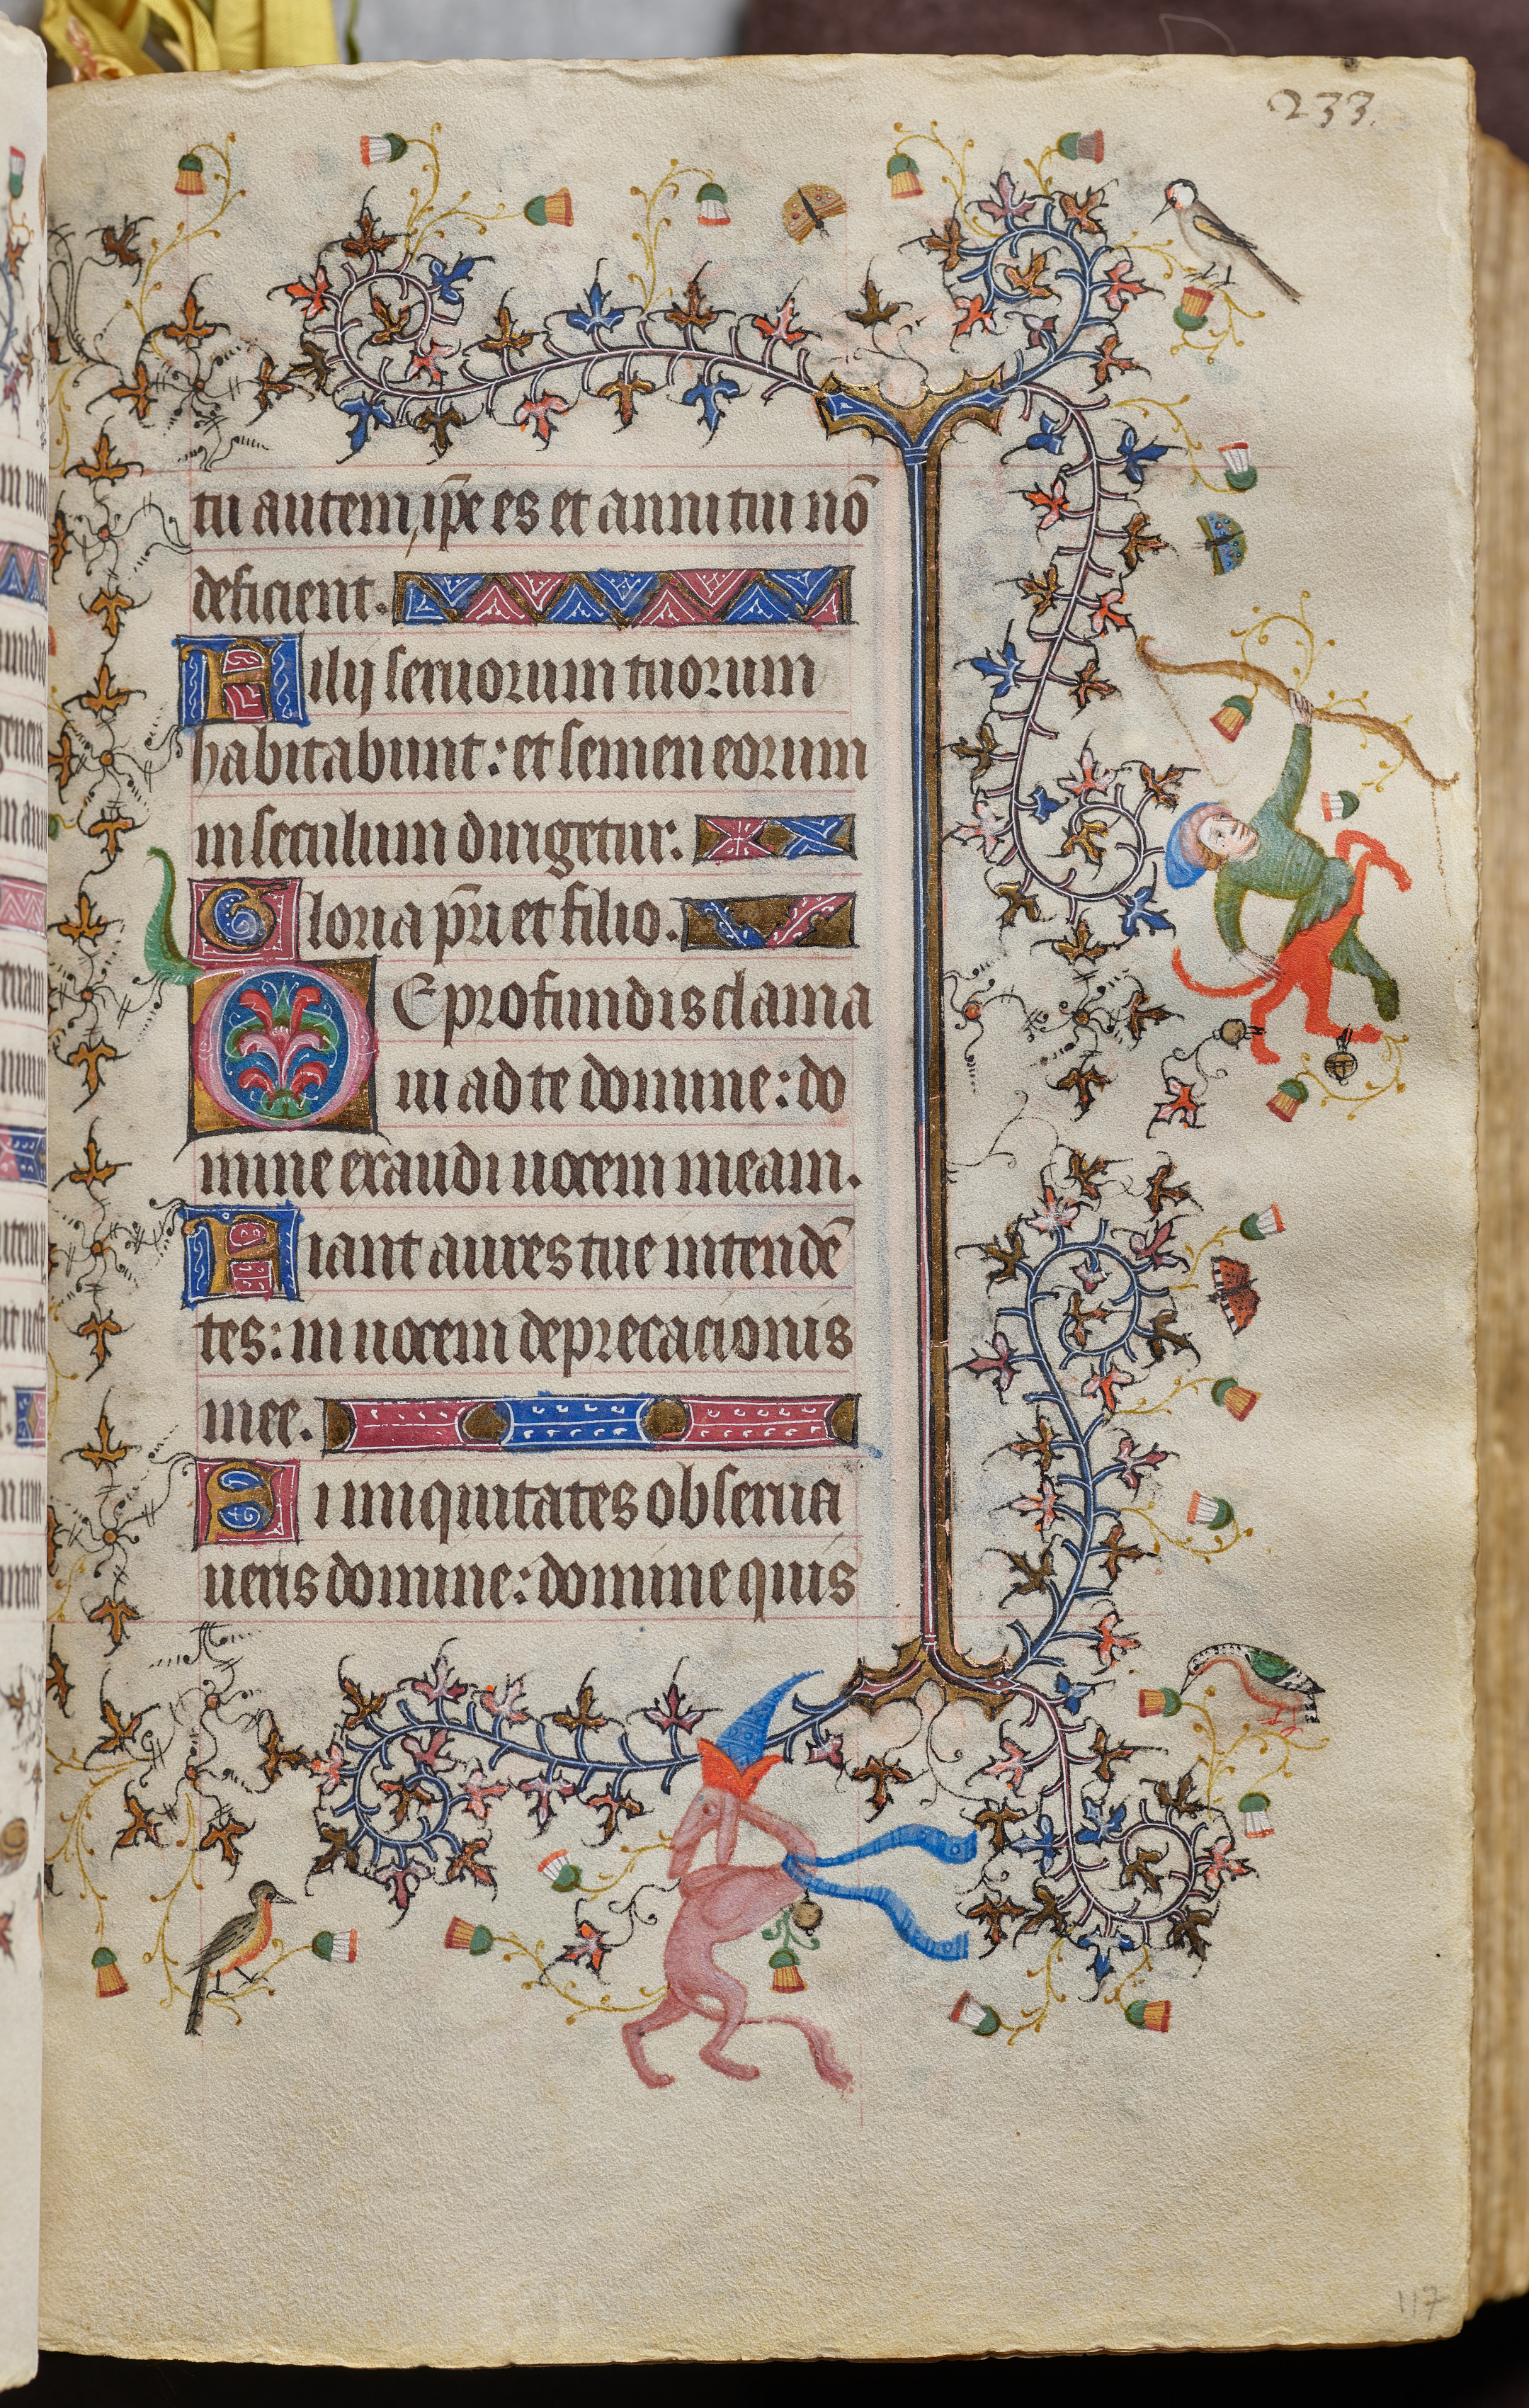 233.
tu autem ip̄e es et anni tui nō
deficient.
Filij seruorum tuorum
habitabunt: et semen eorum
in seculum dirigetur.
Gloria p̄ri et filio.
De profundis clama
ui ad te domine: do
mine exaudi uocem meam.
Fiant aures tue intendē
tes: in uocem deprecacionis
mee.
Si iniquitates obserua
ueris domine: domine quis
117